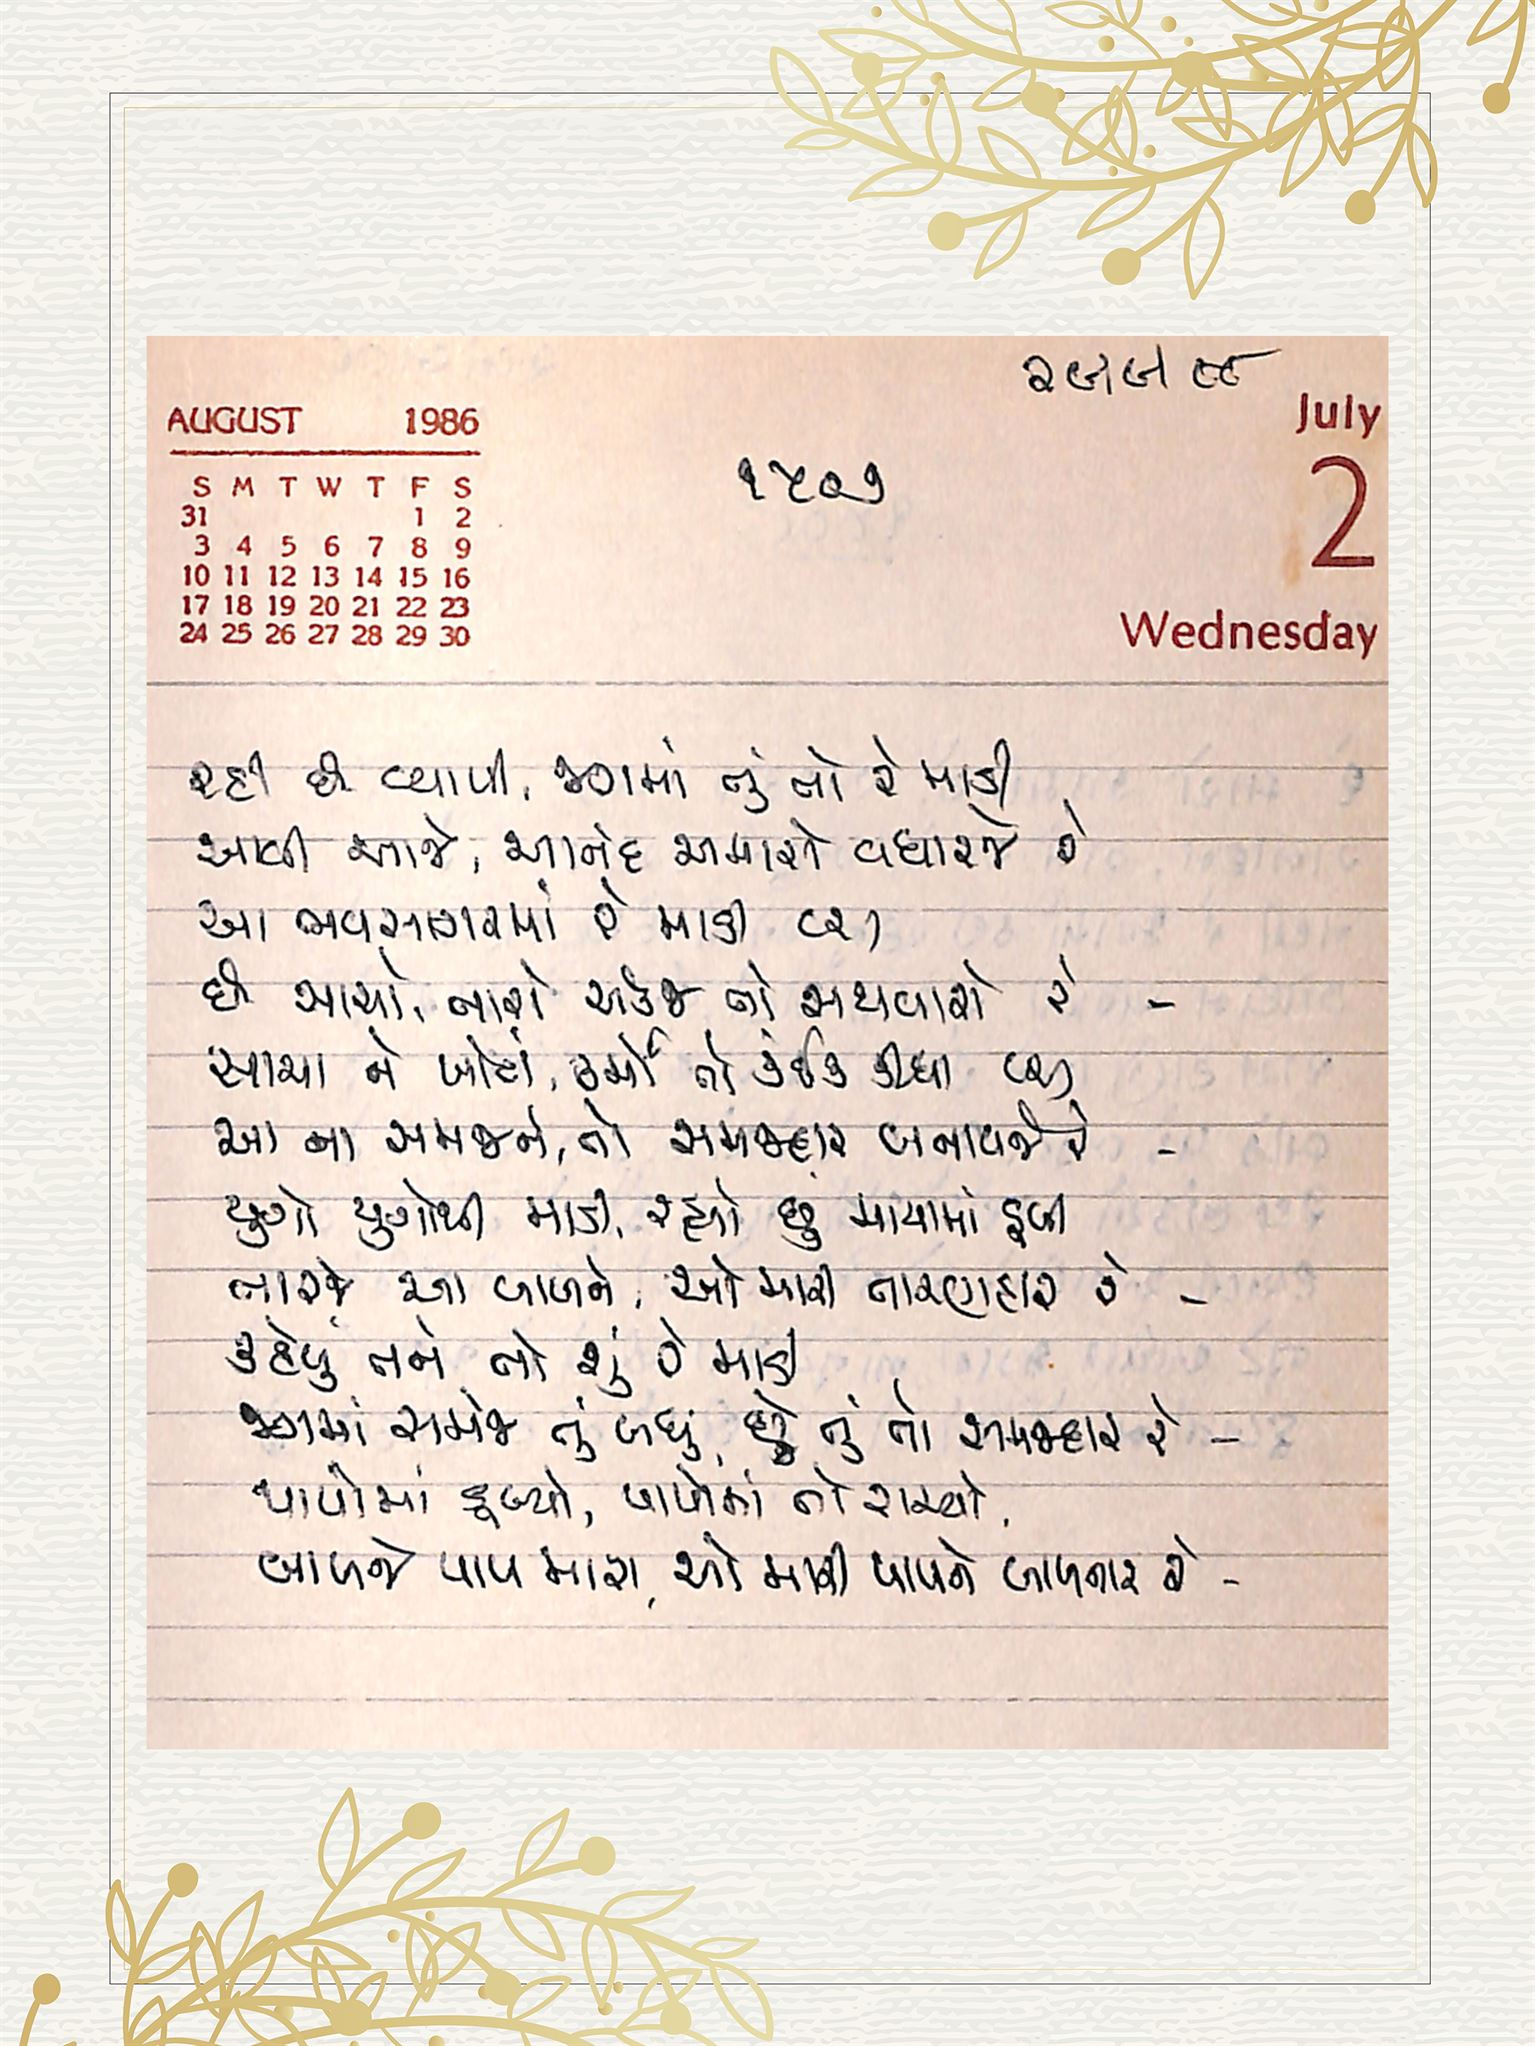 AUGUST 1986
S M T W T F S
31 1 2
3 4 5 6 7 8 9
10 11 12 13 14 15 16
17 18 19 20 21 22 23
24 25 26 27 28 29 30
July
2
Wednesday
રહી છે વ્યાપી, જગમાં તું તો રે માડી
આવી આજે, આનંદ અમારો વધારજે રે
આ ભવસાગરમાં રે માડી
છે સાચો, તારો એકજ તો સથવારો રે -
સાચા ને ખોટાં, કર્મો તો કંઈક કીધા
આ ના સમજને, તો સમજદાર બનાવજે રે -
યુગો યુગોથી માડી, રહ્યો છું માયામાં ડૂબી
તારજે આ બાળને, ઓ મારી તારણહાર રે -
કહેવું તને તો શું રે માડી
જગમાં સમજે તું બધું, છે તું તો સમજદાર રે -
પાપોમાં ડૂબ્યો, પાપોમાં તો રાચ્યો,
બાળજે પાપ મારા, ઓ મારી પાપને બાળનાર રે -